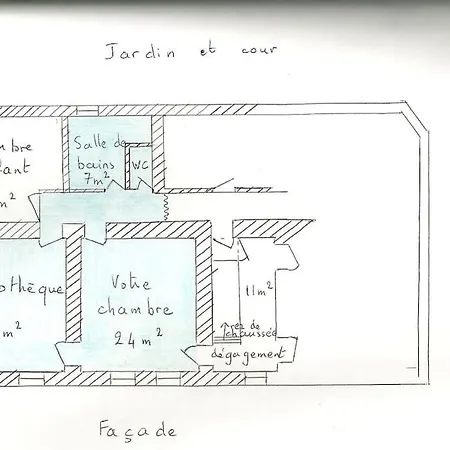 Jardin et cour
mbre
ant
m²
Salle de
bains
7m²
WC
othèque
m²
Votre
chambre
24 m²
11m²
rez de
chaussée
dégagement
Façade